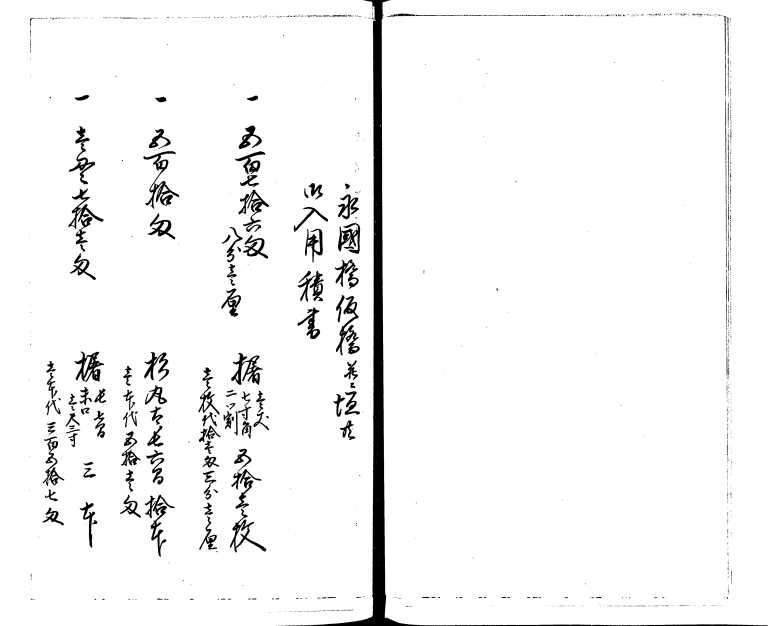 永國橋仮橋并垣共
御入用積書
一 五百七拾六匁
八分壱厘
椐 五拾壱枚
壱丈
七寸角
二ツ割
壱枚代拾壱匁三分壱厘
一 五百拾匁
松丸太長六間 拾本
壱本代五拾壱匁
一 壱〆七拾壱匁
椐 三本
長七間
末口
壱尺三寸
壱本代三百五拾七匁